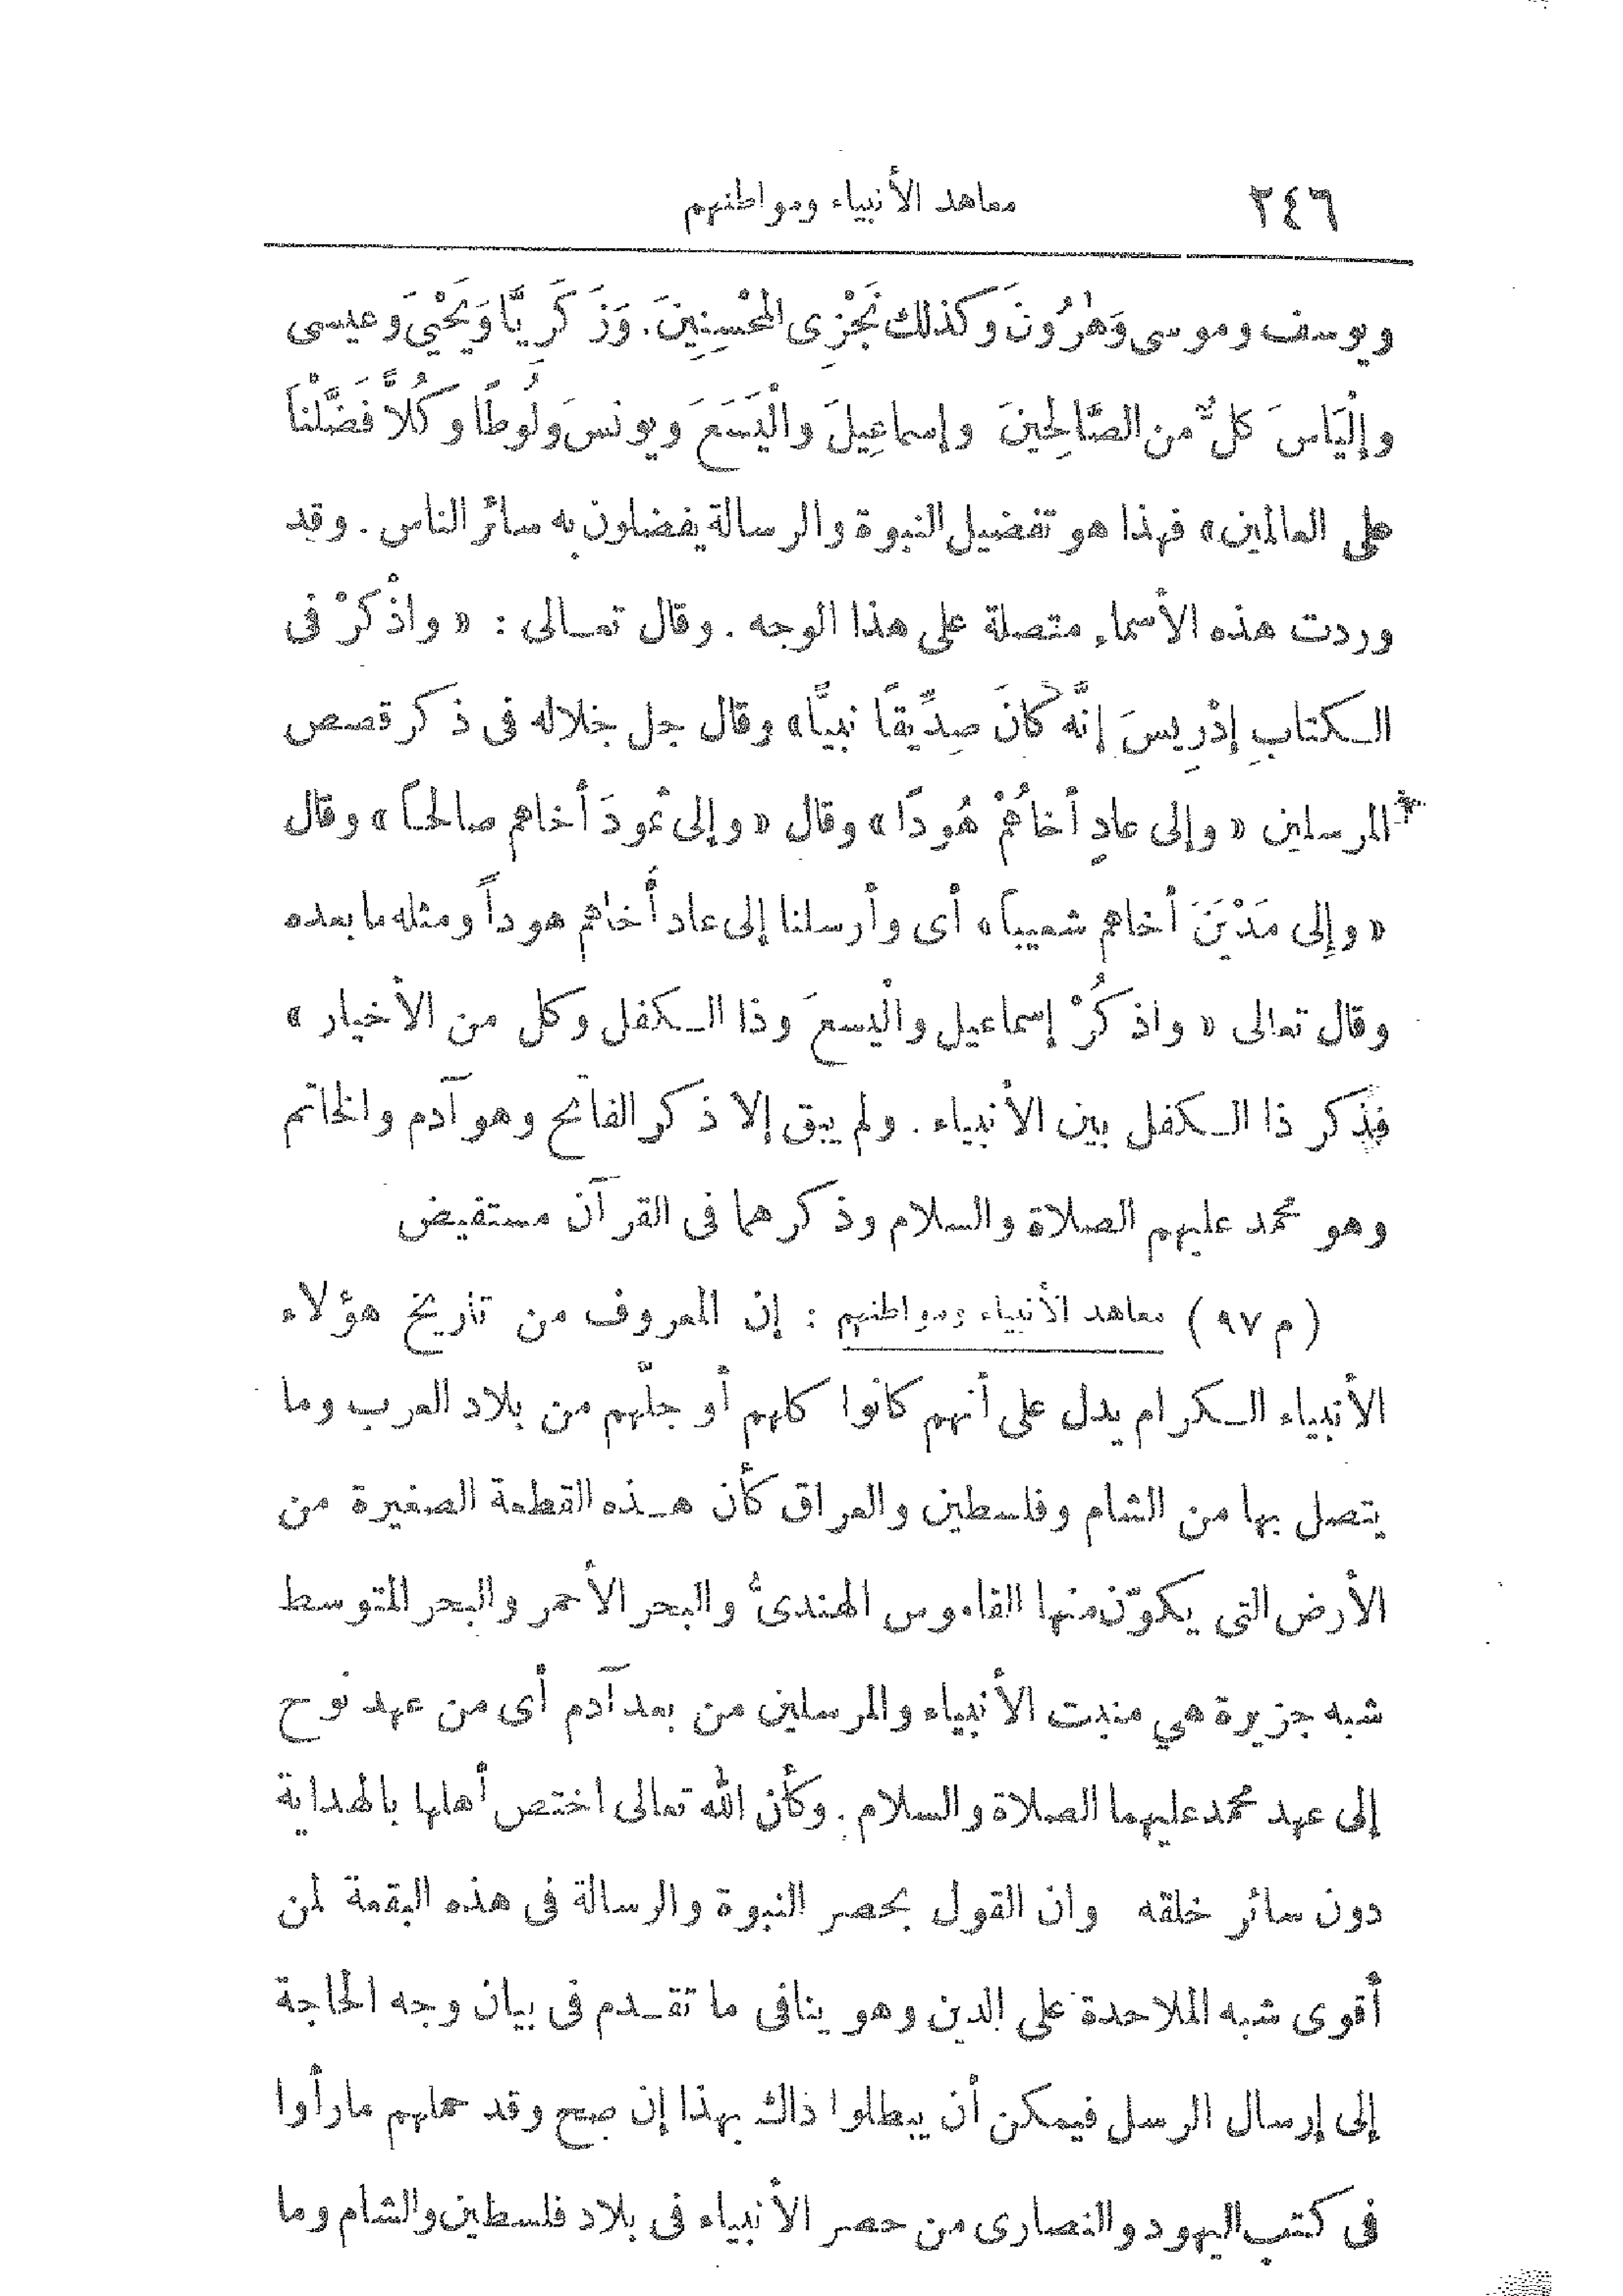 ٢٤٦ معاهد الأنبياء ومواطنهم
ويوسف وموسى وَهٰرُونَ وكذلك نَجْزِى المُحْسِنِينَ. وَزَكَرِيَّا وَيَحْيَيَ وعيسى
وإلْيَاسَ كلٌّ من الصَّالِحِينَ وإسماعِيلَ والْيَسَعَ ويونسَ ولُوطًا وكُلاًّ فَضَّلْنَا
على العالمين» فهذا هو تفضيل النبوة والرسالة يفضلون به سائر الناس. وقد
وردت هذه الأسماء متصلة على هذا الوجه. وقال تعـالى: «واذْكرْ فى
الـكتابِ إدْرِيسَ إنَّه كانَ صِدِّيقًا نبيًّا» وقال جل جلاله فى ذكر قصص
المرسلين «وإلى عادٍ أخاهُمْ هُودًا» وقال «وإلى ثمودَ أخاهم صالحاً» وقال
«وإلى مَدْيَنَ أخاهم شعيباً» أى وأرسلنا إلى عاد أخاهم هوداً ومثله ما بعده
وقال تعالى «واذكُرْ إسماعيل والْيسعَ وذا الـكفل وكل من الأخيار»
فذكر ذا الـكفل بين الأنبياء. ولم يبق إلا ذكر الفاتح وهو آدم والخاتم
وهو محمد عليهم الصلاة والسلام وذكرهما فى القرآن مستفيض
(م ٩٧) معاهد الأنبياء ومواطنهم: إن المعروف من تأريخ هؤلاء
الأنبياء الـكرام يدل على أنهم كانوا كلهم أو جلّهم من بلاد العرب وما
يتصل بها من الشام وفلسطين والعراق كأن هـذه القطعة الصغيرة من
الأرض التى يكوّن منها القاموس الهندىُّ والبحر الأحمر والبحر المتوسط
شبه جزيرة هي منبت الأنبياء والمرسلين من بعد آدم أى من عهد نوح
إلى عهد محمد عليهما الصلاة والسلام. وكأن الله تعالى اختص أهلها بالهداية
دون سائر خلقه وان القول بحصر النبوة والرسالة فى هذه البقعة لمن
أقوى شبه الملاحدة على الدين وهو ينافى ما تقـدم فى بيان وجه الحاجة
إلى إرسال الرسل فيمكن أن يبطلوا ذاك بهذا إن صح وقد حملهم ما رأوا
فى كتب اليهود والنصارى من حصر الأنبياء فى بلاد فلسطين والشام وما